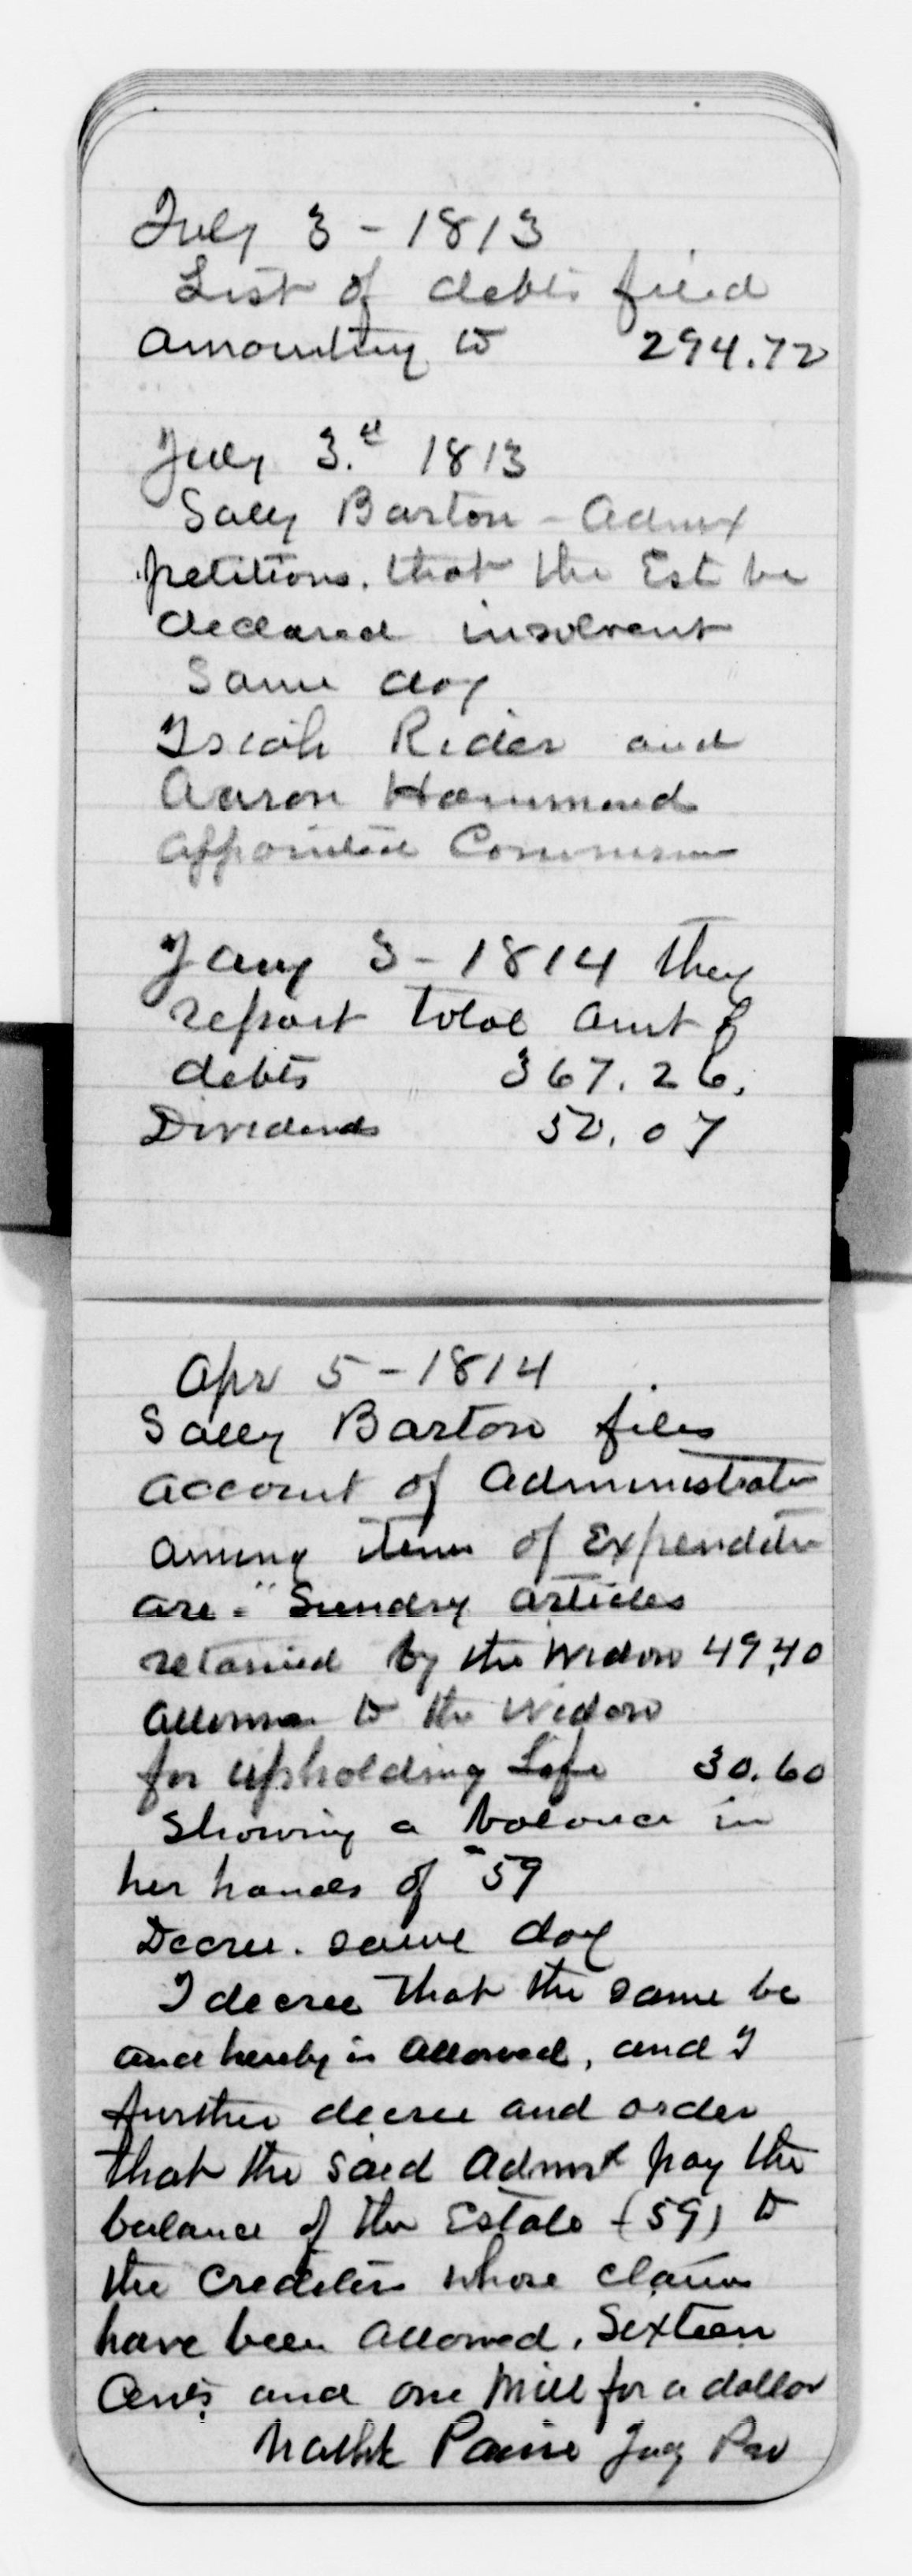 July 3 - 1813
List of debts filed
amounting to 294.72
July 3.d 1813
Sally Barton - Admx
petitions. that the Est be
declared insolvent
Same day
Isiah Rider and
Aaron Hammond
appointed
Jany 3 - 1814 they
report total amt of
debts 367.26.
Dividends 50.07
Apr 5 - 1814
Sally Barton files
account of Administratn
among items of Expenditu
are - "Sundry articles
retained by the widow 49.40
to the widow
for upholding Life 30.60
Showing a balance in
her hands of 59
Decree. same day
I decree that the same be
and hereby is allowed, and I
further decree and order
that the said Admx pay the
balance of the Estate (59) to
the Creditors whose claims
have been allowed. Sixteen
Cents and one Mill for a dollar
Nathl Paine Jug Pro